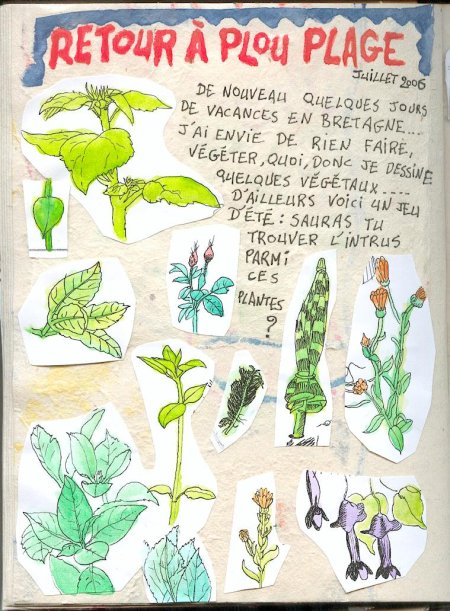 RETOUR À PLOU PLAGE
JUILLET 2006
DE NOUVEAU QUELQUES JOURS
DE VACANCES EN BRETAGNE....
J'AI ENVIE DE RIEN FAIRE,
VÉGÉTER, QUOI, DONC JE DESSINE
QUELQUES VÉGÉTAUX....
D'AILLEURS VOICI UN JEU
D'ÉTÉ : SAURAS TU
TROUVER L'INTRUS
PARMI
CES
PLANTES
?